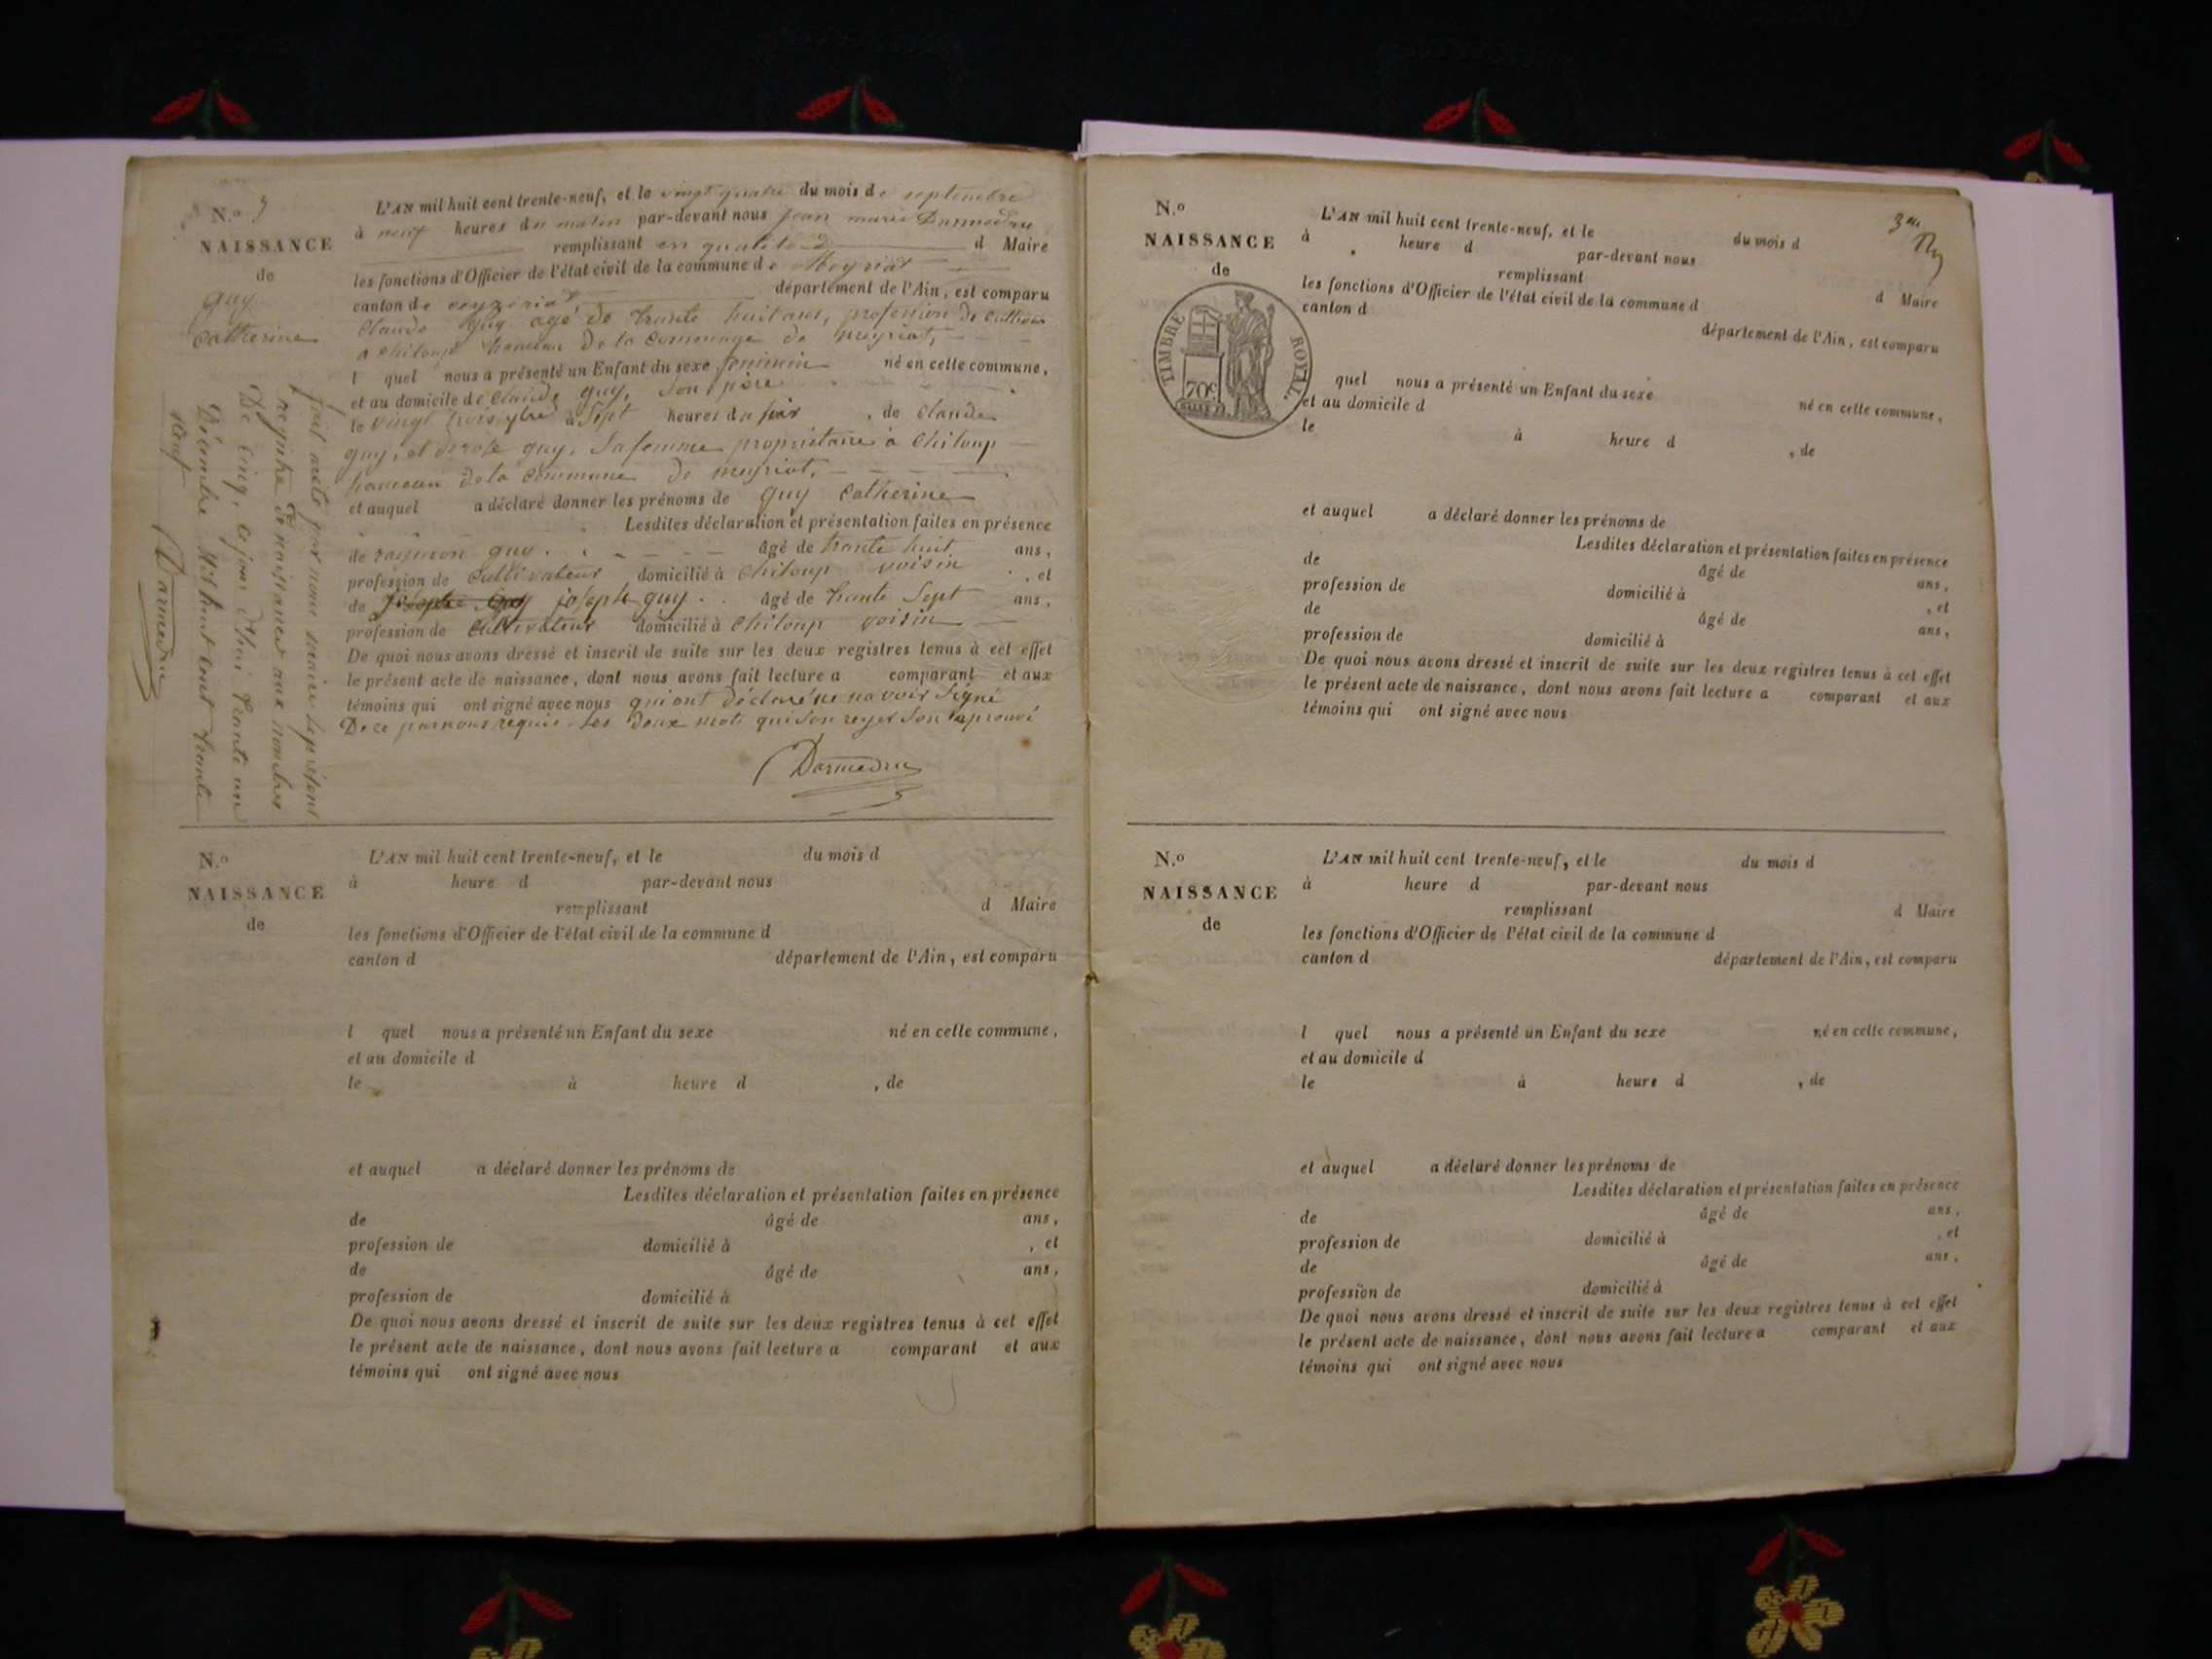 N.o 9
NAISSANCE
de
guy
catherine
L'AN mil huit cent trente-neuf, et le vingt quatre du mois de septembre
à neuf heures du matin par-devant nous jean marie Darmedru
remplissant en qualité d Maire
les fonctions d'Officier de l'état civil de la commune de Meyriat
canton de ceyzériat département de l'Ain, est comparu
Claude guy agé de trante huit ans, profession de
a chiloup hameau de la de meyriat,
l quel nous a présenté un Enfant du sexe feminin né en cette commune,
et au domicile de Claude guy, son père
le vingt trois à Sept heures du soir , de Claude
guy, et guy, Sa femme propriétaire à Chiloup
hameau de la Commune de meyriat,
et auquel a déclaré donner les prénoms de guy Catherine
Lesdites déclaration et présentation faites en présence
de guy âgé de trante huit ans,
profession de Cultivateur domicilié à Chiloup voisin , et
de joseph guy âgé de trante Sept ans,
profession de Cultivateur domicilié à Chiloup voisin
De quoi nous avons dressé et inscrit de suite sur les deux registres tenus à cet effet
le présent acte de naissance, dont nous avons fait lecture a comparant et aux
témoins qui ont signé avec nous qui ont déclaré ne Signé
De ce par nous requis. Les Deux mots
Darmedru
fait par nous maire le présent
registre de naissances aux nombre
De Cinq, ce jour d'hui trante un
Décembre Mil huit cent trante
neuf
Darmedru
N.o
NAISSANCE
de
L'AN mil huit cent trente-neuf, et le du mois d
à heure d par-devant nous
remplissant d Maire
les fonctions d'Officier de l'état civil de la commune d
canton d département de l'Ain, est comparu
l quel nous a présenté un Enfant du sexe né en cette commune,
et au domicile d
le à heure d , de
et auquel a déclaré donner les prénoms de
Lesdites déclaration et présentation faites en présence
de âgé de ans,
profession de domicilié à , et
de âgé de ans,
profession de domicilié à
De quoi nous avons dressé et inscrit de suite sur les deux registres tenus à cet effet
le présent acte de naissance, dont nous avons fait lecture a comparant et aux
témoins qui ont signé avec nous
N.o
NAISSANCE
de
TIMBRE ROYAL.
70c
L'AN mil huit cent trente-neuf, et le du mois d
à heure d par-devant nous
remplissant d Maire
les fonctions d'Officier de l'état civil de la commune d
canton d département de l'Ain, est comparu
quel nous a présenté un Enfant du sexe né en cette commune,
et au domicile d
le à heure d , de
et auquel a déclaré donner les prénoms de
Lesdites déclaration et présentation faites en présence
de âgé de ans,
profession de domicilié à , et
de âgé de ans,
profession de domicilié à
De quoi nous avons dressé et inscrit de suite sur les deux registres tenus à cet effet
le présent acte de naissance, dont nous avons fait lecture a comparant et aux
témoins qui ont signé avec nous
N.o
NAISSANCE
de
L'AN mil huit cent trente-neuf, et le du mois d
à heure d par-devant nous
remplissant d Maire
les fonctions d'Officier de l'état civil de la commune d
canton d département de l'Ain, est comparu
l quel nous a présenté un Enfant du sexe né en cette commune,
et au domicile d
le à heure d , de
et auquel a déclaré donner les prénoms de
Lesdites déclaration et présentation faites en présence
de âgé de ans,
profession de domicilié à , et
de âgé de ans,
profession de domicilié à
De quoi nous avons dressé et inscrit de suite sur les deux registres tenus à cet effet
le présent acte de naissance, dont nous avons fait lecture a comparant et aux
témoins qui ont signé avec nous